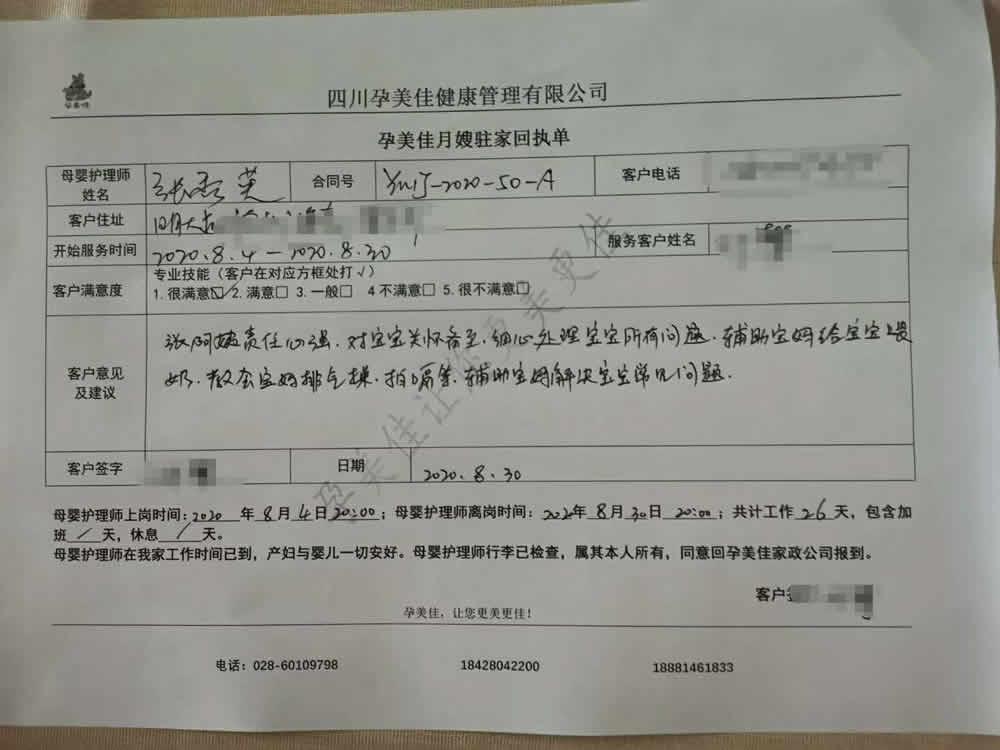 孕美佳
四川孕美佳健康管理有限公司
孕美佳月嫂驻家回执单
母婴护理师姓名 张 英 合同号 YMJ-2020-50-A 客户电话
客户住址
开始服务时间 2020.8.4-2020.8.30 服务客户姓名
客户满意度 专业技能（客户在对应方框处打√）
1.很满意☑ 2.满意□ 3.一般□ 4 不满意□ 5.很不满意□
客户意见及建议 张阿姨责任心强，对宝宝关怀备至，细心处理宝宝所有问题，辅助宝妈给宝宝喂
奶，教会宝妈排气操，拍嗝等，辅助宝妈解决宝宝常见问题.
客户签字 日期 2020.8.30
母婴护理师上岗时间：2020 年 8 月 4 日 20:00；母婴护理师离岗时间：2020 年 8 月 30 日 20:00；共计工作 26 天，包含加
班 / 天，休息 / 天。
母婴护理师在我家工作时间已到，产妇与婴儿一切安好。母婴护理师行李已检查，属其本人所有，同意回孕美佳家政公司报到。
客户
孕美佳，让您更美更佳！
电话：028-60109798 18428042200 18881461833
孕美佳让您更美更佳